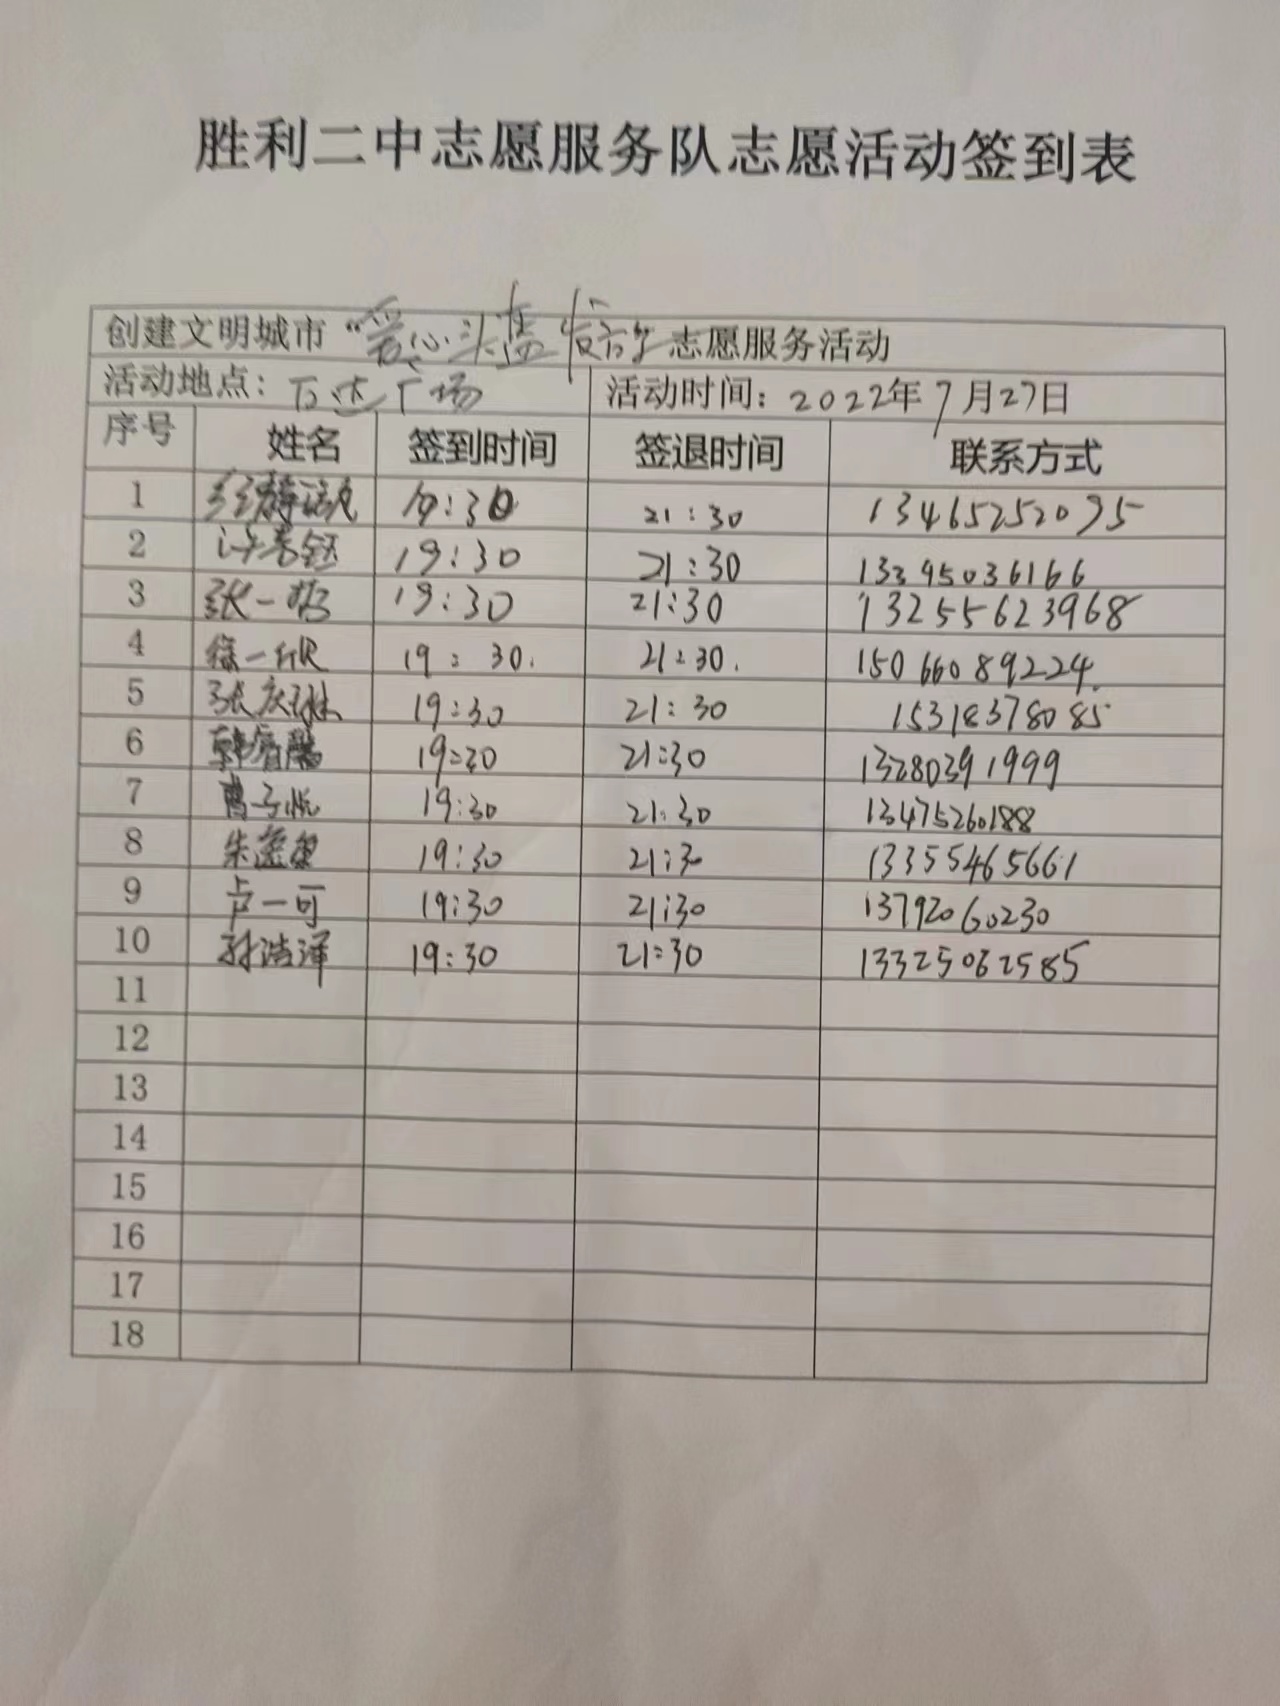 胜利二中志愿服务队志愿活动签到表
创建文明城市“爱心头盔 志愿服务活动
活动地点：万达广场 活动时间：2022年7月27日
序号 姓名 签到时间 签退时间 联系方式
1 19:30 21:30 13465252095
2 19:30 21:30 13395036166
3 张一哲 19:30 21:30 13255623968
4 徐一欣 19:30. 21:30. 15066089224.
5 张庆琳 19:30 21:30 15318378085
6 19:30 21:30 13280391999
7 曹子悦 19:30 21:30 13475260188
8 朱 19:30 21:30 13355465661
9 卢一可 19:30 21:30 13792060230
10 孙浩泽 19:30 21:30 13325062585
11
12
13
14
15
16
17
18